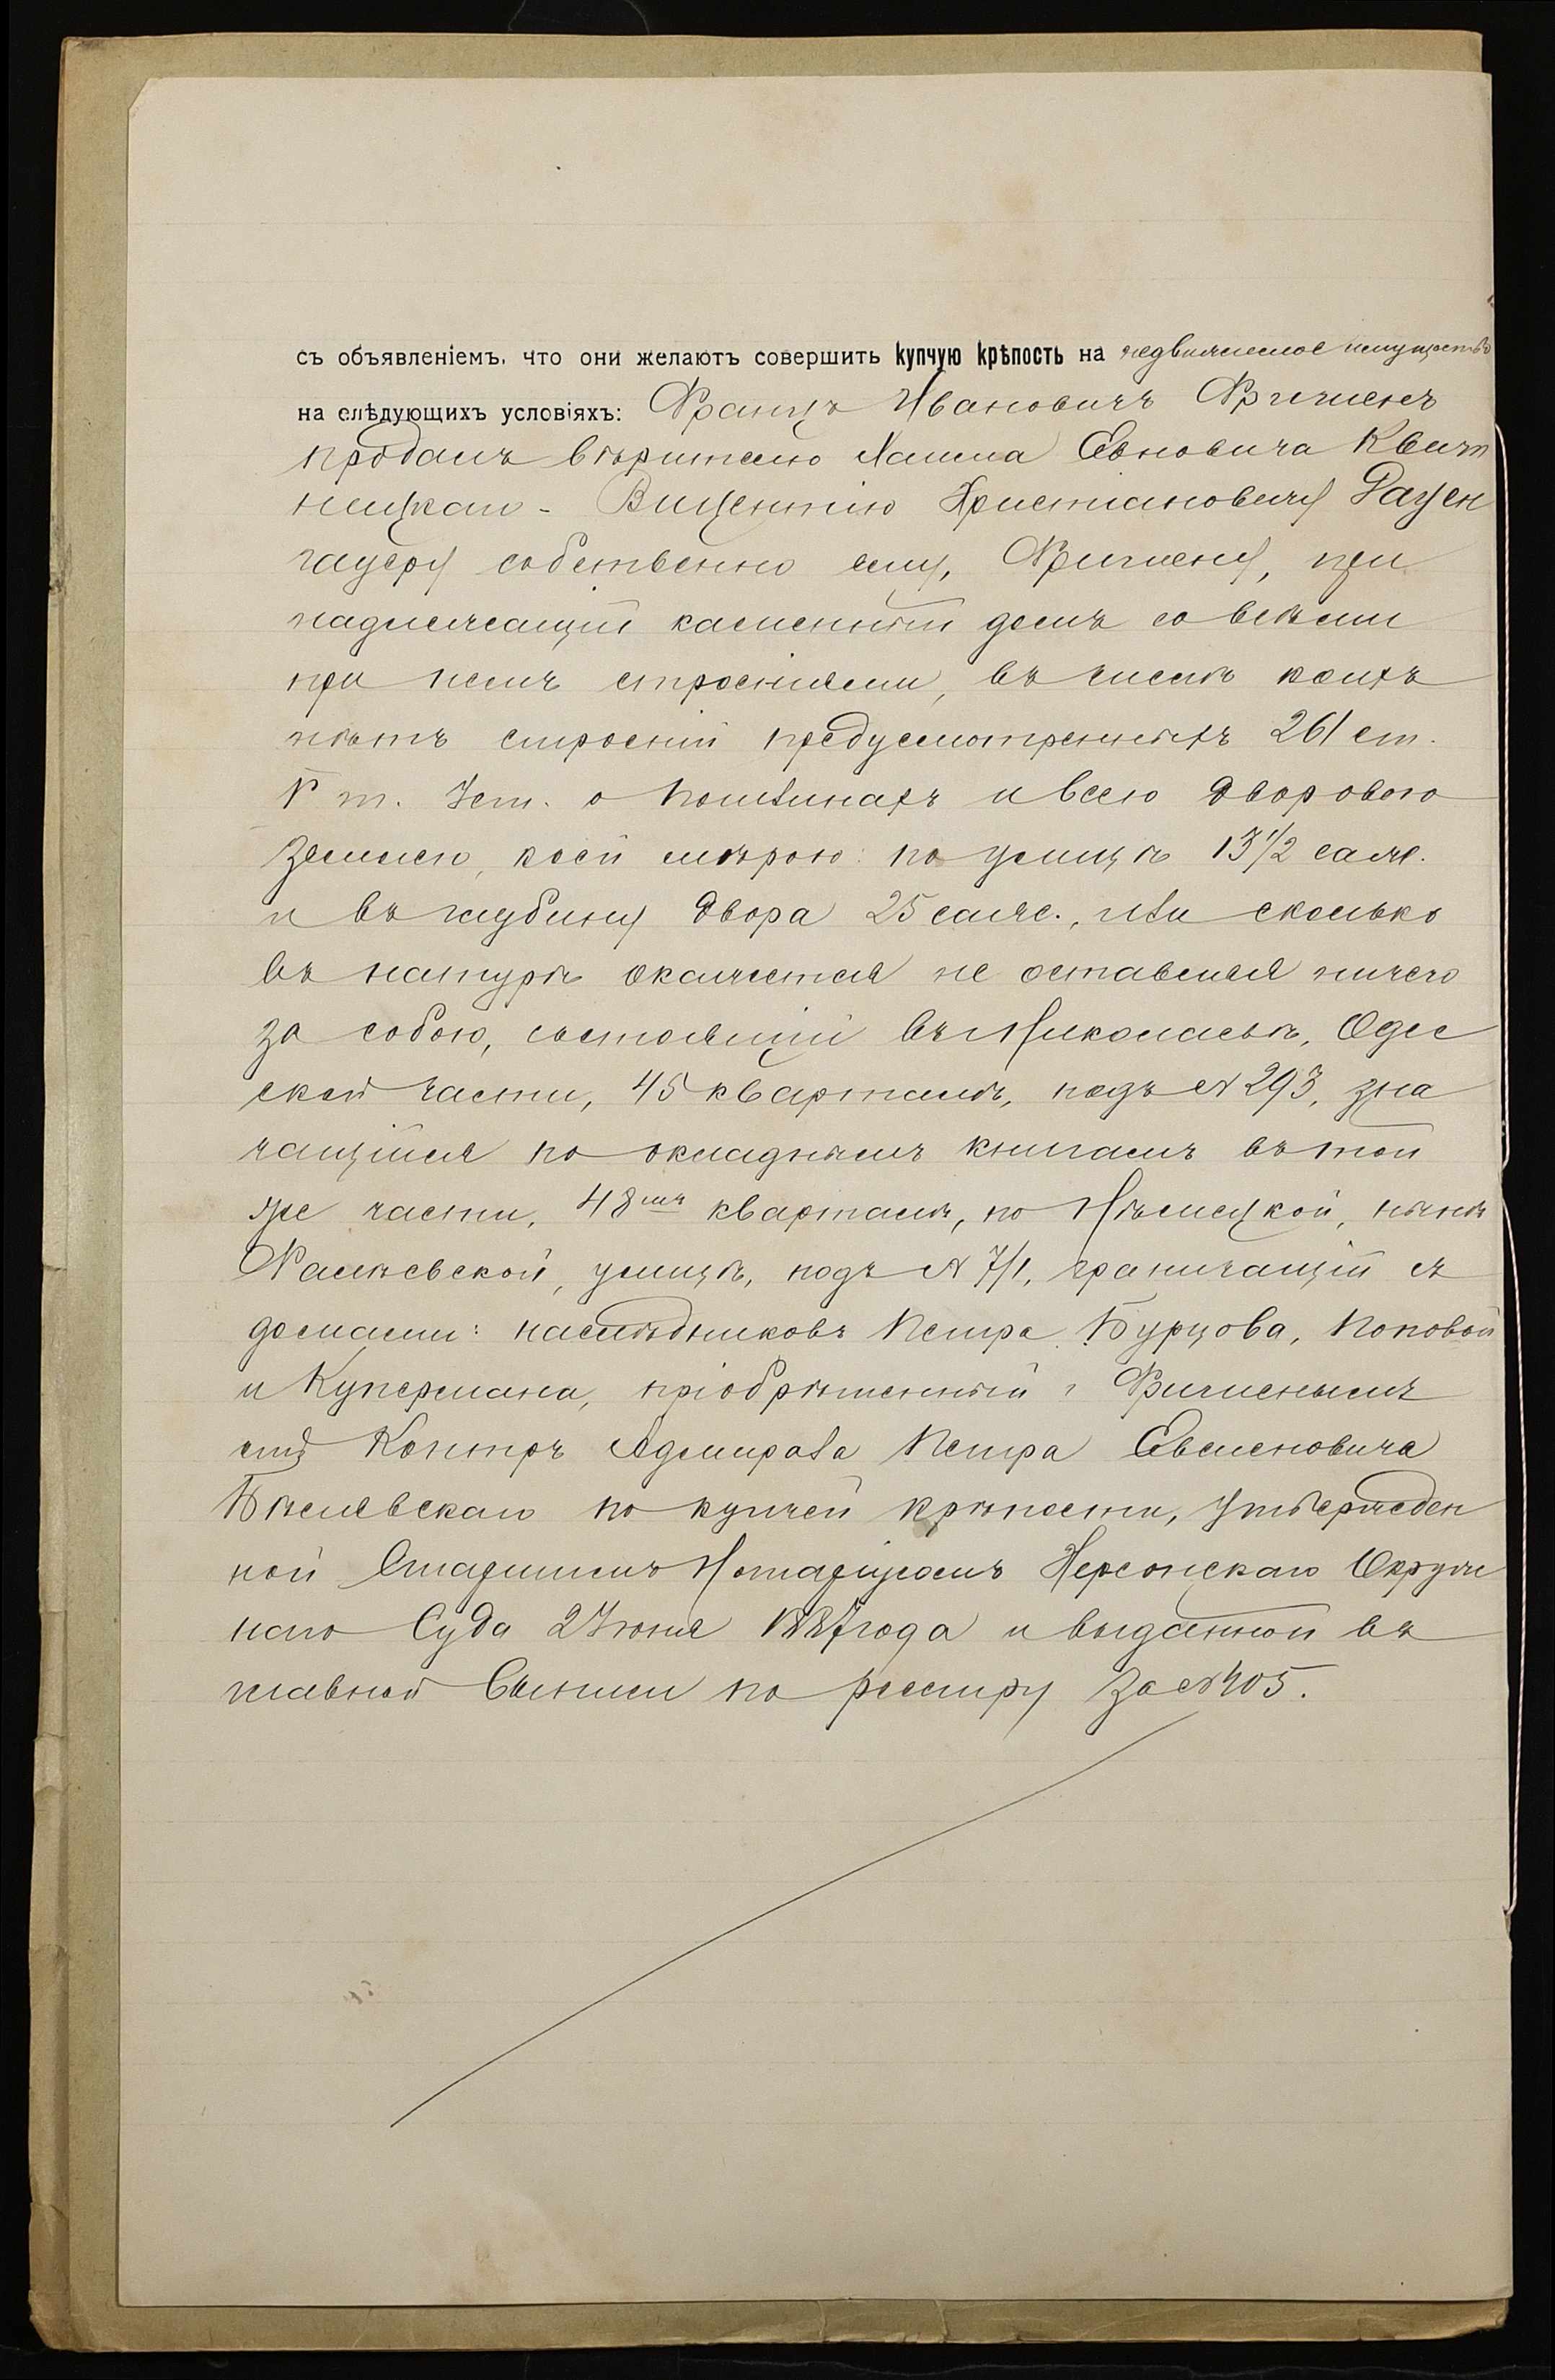 съ объявленіемъ, что они желаютъ совершить купчую крѣпость на недвижимое имущество
на слѣдующихъ условіяхъ: Францъ Ивановичъ Фришенъ
продалъ вѣрителю Хаима Евновича Квит
ницкаго - Викентію Христіановичу Раузен
гаузеру собственно ему, Фришену, при
надлежащій каменный домъ со всѣми
при немъ строеніями, въ числѣ коихъ
нѣтъ строеній предусмотренныхъ 261 ст.
V т. Уст. о Пошлинахъ и всею дворовою
землею, коей мѣрою: по улицѣ 13 1/2 саж.
и въ глубину двора 25 саж., или сколько
въ натурѣ окажется не оставляя ничего
за собою, состоящій въ г. Николаевѣ, Одес
ской части, 45 кварталѣ, подъ № 293, зна
чащійся по окладнымъ книгамъ въ той
же части, 48мъ кварталѣ, по Нѣмецкой, нынѣ
Фалѣевской, улицѣ, подъ № 7/1, граничащій съ
домами: наслѣдниковъ Петра Бурцова, Поповой
и Купермана, пріобрѣтенный г. Фришеномъ
отъ Контръ Адмирала Петра Евменовича
Бѣлявскаго по купчей крѣпости, утвержден
ной Старшимъ Нотаріусомъ Херсонскаго Окруж
наго Суда 2 Іюня 1887 года и выданной въ
главной выписи по реестру за № 405.